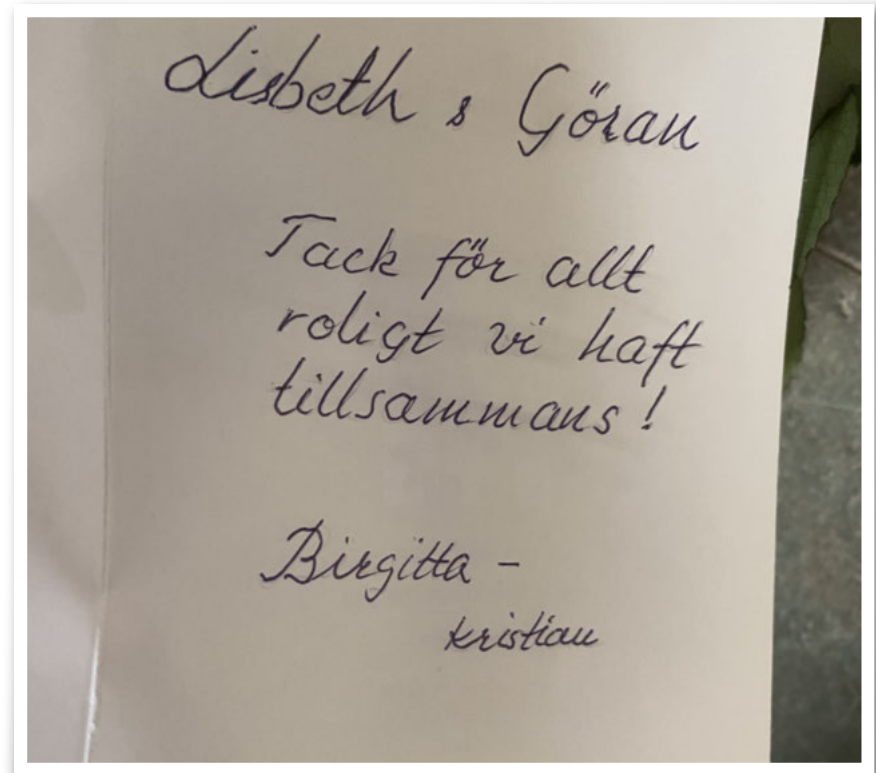 Lisbeth & Göran
Tack för allt
roligt vi haft
tillsammans!
Birgitta -
kristian